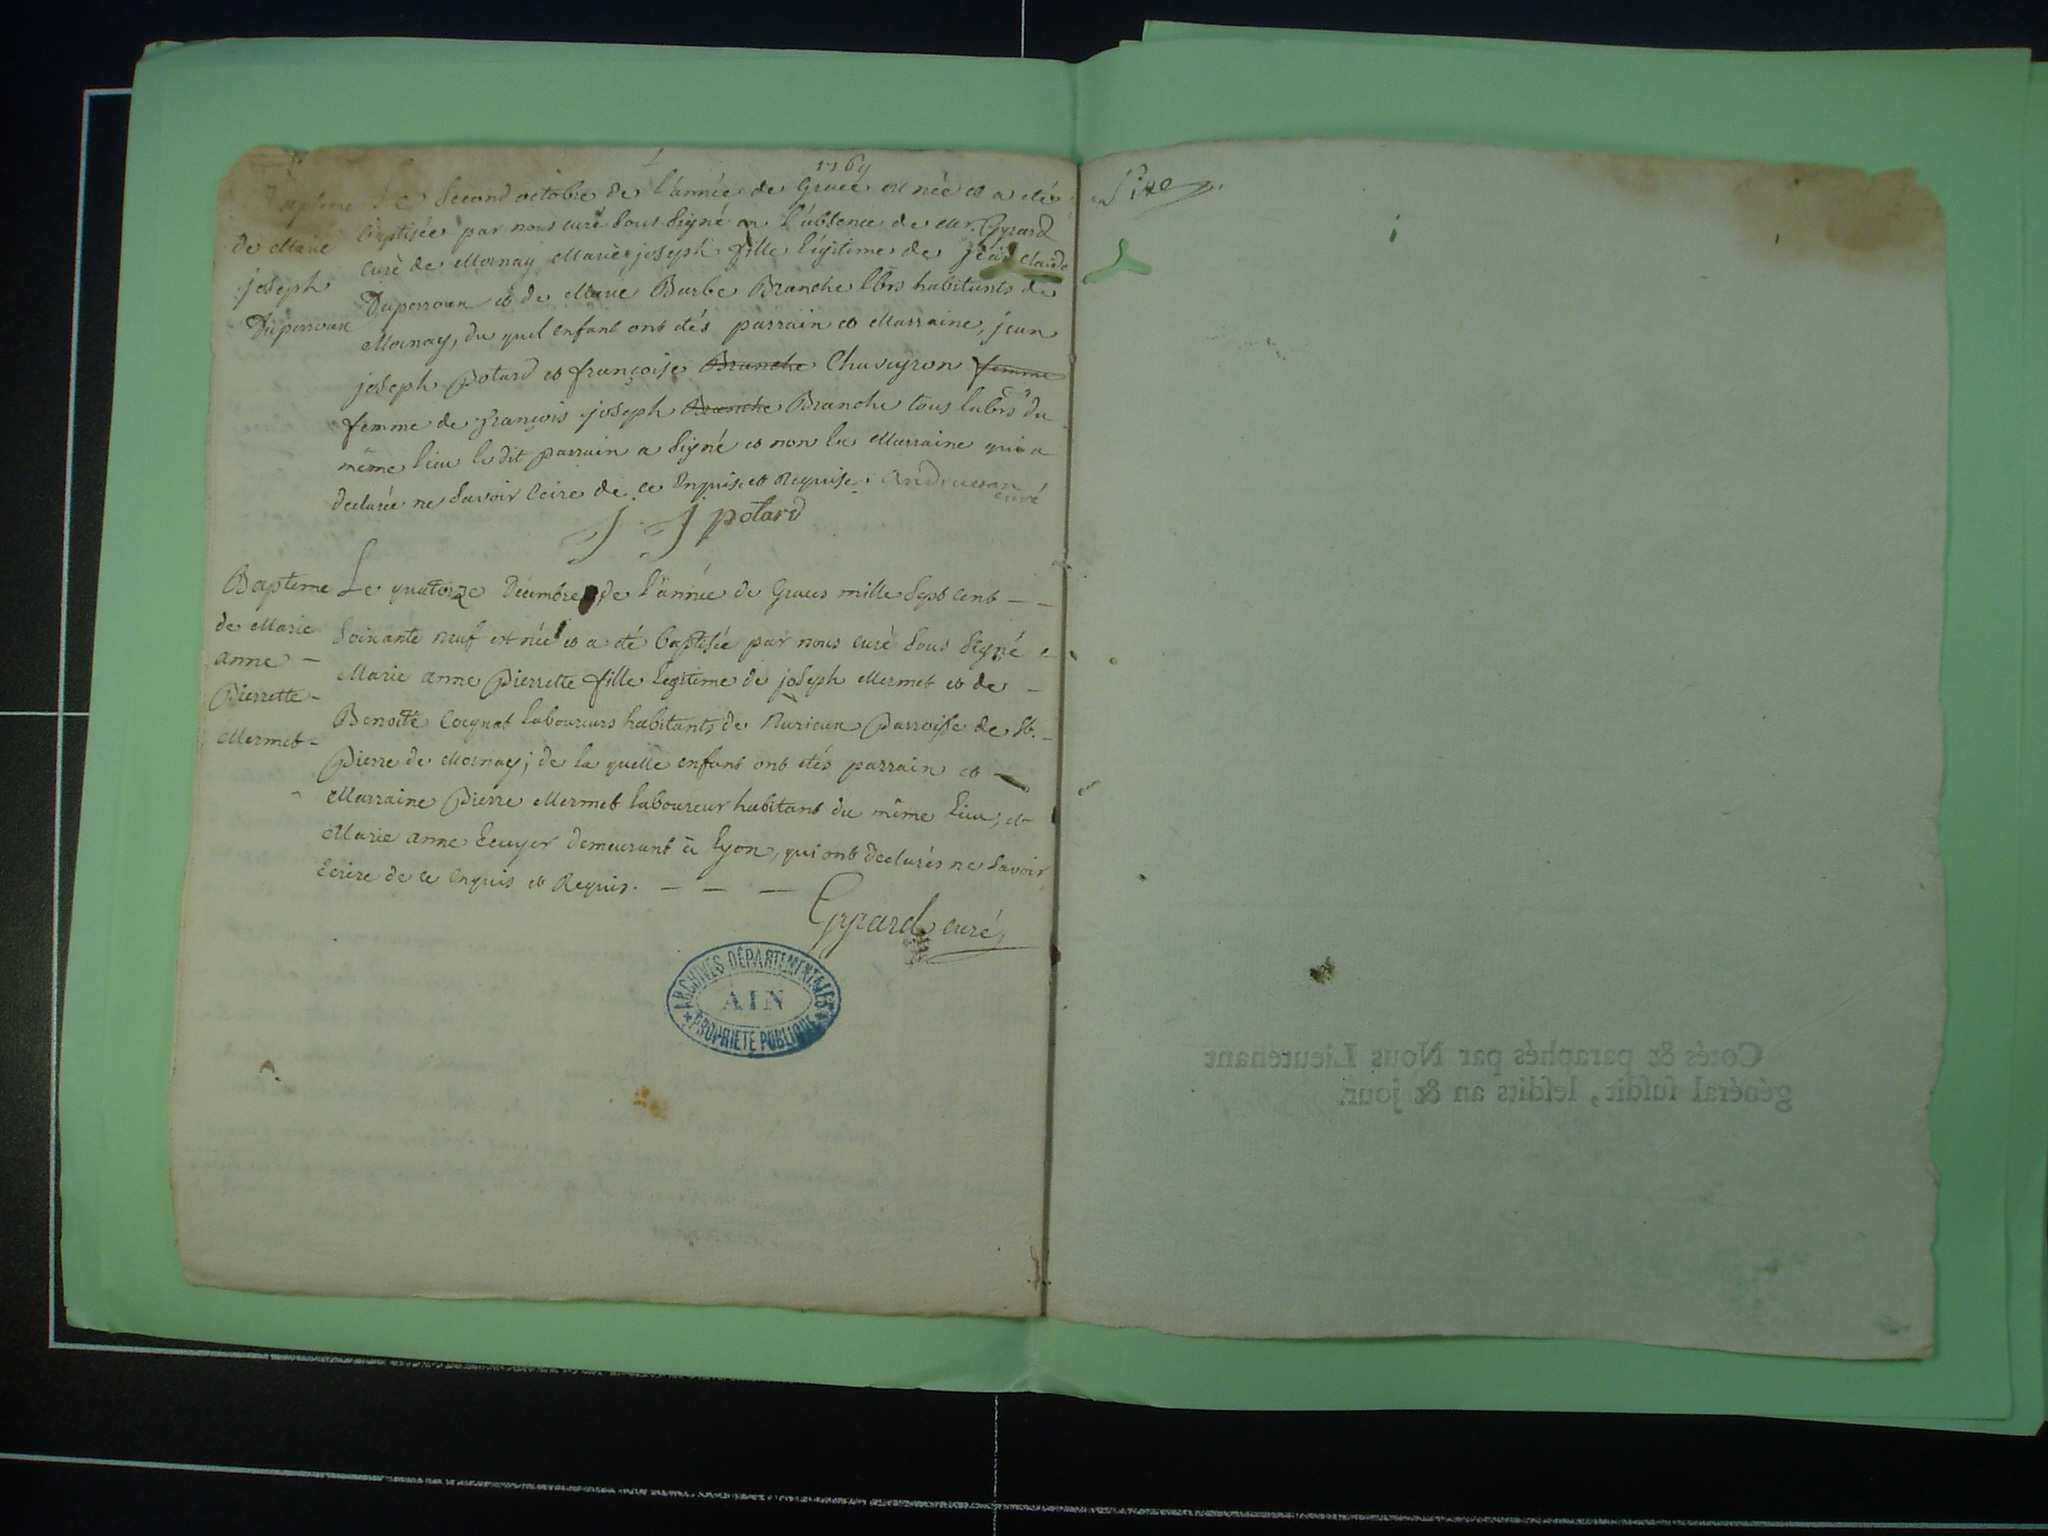 1769
Bapteme Le second octobre de l'année de Grace est née et a étée
baptisée par nous curé sous signé en l'absence de Mr. Gyrard
de Marie curé de Mornay Marie joseph fille légitime de jean Claude
joseph Duperroux et de Marie Barbe Branche lbrs habitants de
Duperroux Mornay, du quel enfant ont étés parrain et Marraine, jean
joseph Potard et françoise Branche Chaveyron femme
femme de françois joseph Branche Branche tous labrs du
même lieu le dit parrain a signé et non la Marraine qui a
declarée ne savoir Ecire de ce Enquise et Requise. curé
J. J potard
Bapteme Le quatorze Décembre de l'année de Graces mille sept cent — —
de Marie soixante neuf est née et a été baptisée par nous curé sous signé
anne — Marie anne Pierrette fille legitime de joseph Mermet et de —
Pierrette — Benoite Coegnat laboureurs habitants de Parroisse de St.
Mermet — Pierre de Mornay; de la quelle enfant ont étés parrain et —
Marraine Pierre Mermet laboureur habitant du même lieu, et
Marie anne Ecuyer demeurant à Lyon, qui ont declarés ne savoir
Ecrire de ce enquis et Requis. — — —
Gyrard curé
ARCHIVES DÉPARTEMENTALES
AIN
PROPRIÉTÉ PUBLIQUE
Cotés & paraphés par Nous Lieutenant
général susdit, lesdits an & jour.